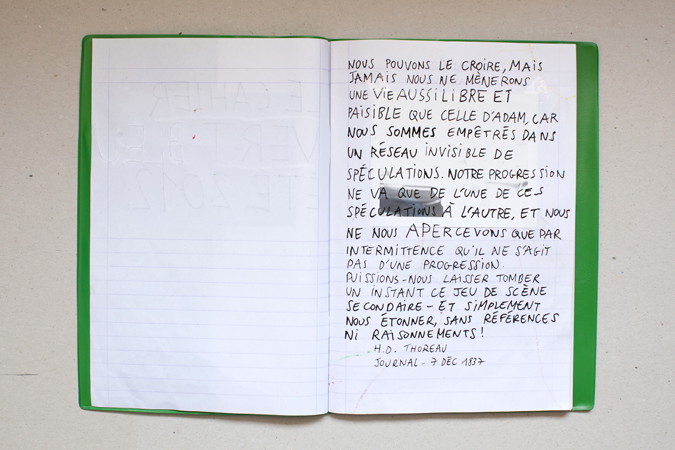 NOUS POUVONS LE CROIRE, MAIS
JAMAIS NOUS NE MÈNERONS
UNE VIE AUSSI LIBRE ET
PAISIBLE QUE CELLE D'ADAM, CAR
NOUS SOMMES EMPÊTRÉS DANS
UN RÉSEAU INVISIBLE DE
SPÉCULATIONS. NOTRE PROGRESSION
NE VA QUE DE L'UNE DE CES
SPÉCULATIONS À L'AUTRE, ET NOUS
NE NOUS APERCEVONS QUE PAR
INTERMITTENCE QU'IL NE S'AGIT
PAS D'UNE PROGRESSION.
PUISSIONS-NOUS LAISSER TOMBER
UN INSTANT CE JEU DE SCÈNE
SECONDAIRE - ET SIMPLEMENT
NOUS ÉTONNER, SANS RÉFÉRENCES
NI RAISONNEMENTS !
H.D. THOREAU
JOURNAL - 7 DÉC 1837